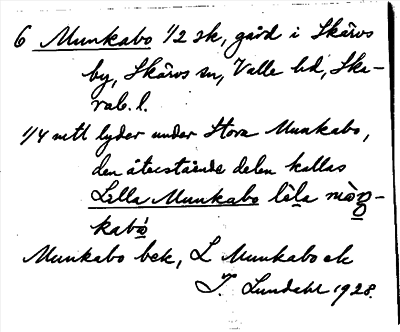 6 Munkabo 1/2 sk, gård i Skärvs
by, Skärvs sn, Valle hd, Ska-
rab. l.
1/4 mtl lyder under Stora Munkabo,
den återstående delen kallas
Lilla Munkabo lìla mòŋ-
kabó
Munkabo bek, L Munkabo ek
I. Lundahl 1928.